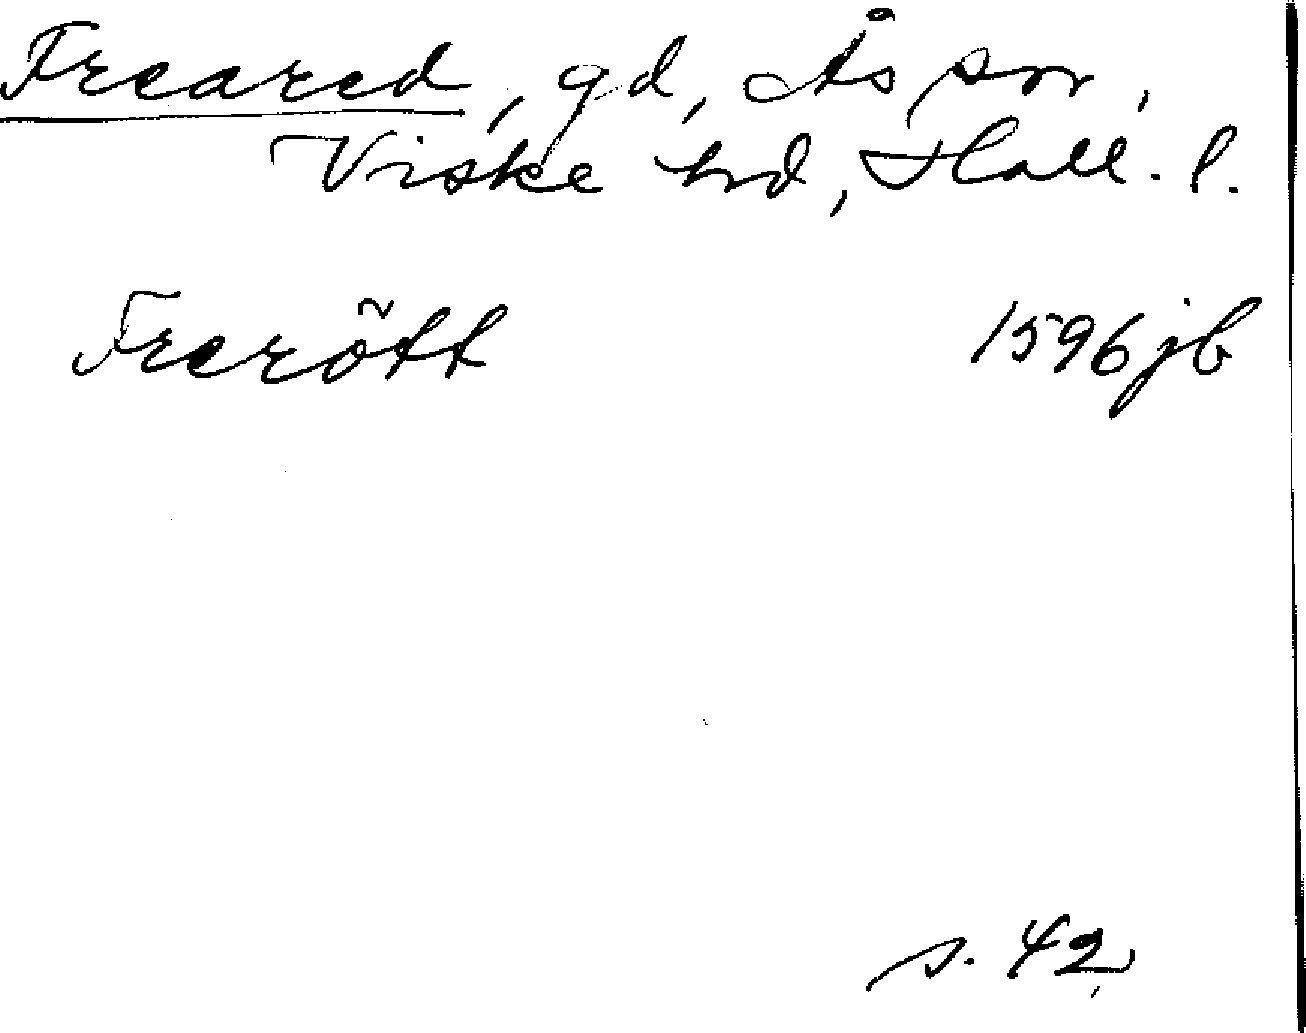 Freared, gd, Ås sn,
Viske hd, Hall. l.
Frerõtt 1596 jb
s. 42